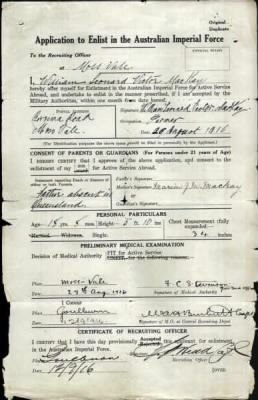 Original
Duplicate
Application to Enlist in the Australian Imperial Force
To the Recruiting Officer
at Moss Vale
I, William Leonard Victor MacKay
hereby offer myself for Enlistment in the Australian Imperial Force for Active Service
Abroad, and undertake to enlist in the manner prescribed, if I am accepted by the
Military Authorities, within one month from date hereof.
Postal Address.
Signature William Leonard Victor MacKay
Road
Occupation
Moss Vale
Date 29 August 1916
(For identification purposes the above should be in the handwriting of the
CONSENT OF PARENTS OR GUARDIANS (For Persons under 21 years of Age)
I HEREBY CERTIFY that I approve of the above application, and consent to the
enlistment of my for Active Service Abroad.
Statement regarding Death or Absence of
either or both Parents.
Father's Signature
Father absent in
Mother's Signature
MacKay
Queensland
PERSONAL PARTICULARS
Age 18 yrs 5
Height 5 10 ins
Chest Measurement (fully
expanded)
Married Widower Single
34 inches
PRELIMINARY MEDICAL EXAMINATION
Decision of Medical Authority
FIT for Active Service
Place Moss-Vale
Date 29th Aug 1916
Signature of Medical Authority
I Concur
Place Goulburn
Date
Signature of M.O. at Central Recruiting Depot
CERTIFICATE OF RECRUITING OFFICER
I HEREBY CERTIFY that I have this day provisionally Accepted this applicant for enlistment
in the Australian Imperial Force.
Place Goulburn
Recruiting Officer
Date 14/9/16
[OVER